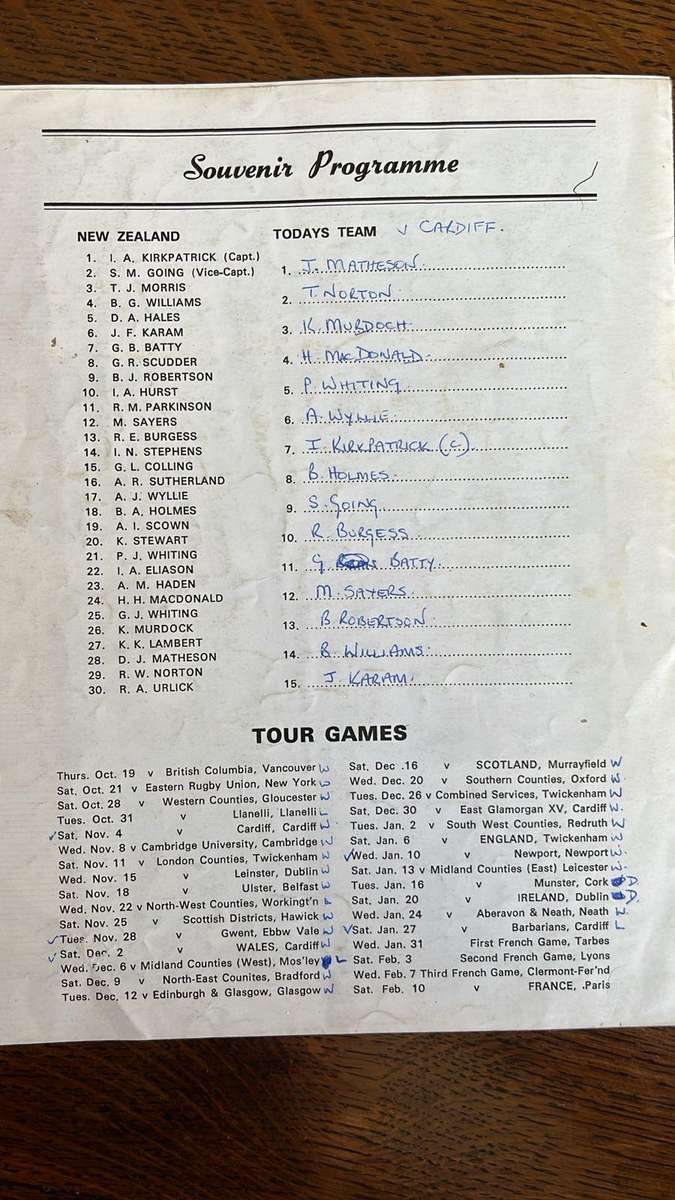 Souvenir Programme
NEW ZEALAND
1. I. A. KIRKPATRICK (Capt.)
2. S. M. GOING (Vice-Capt.)
3. T. J. MORRIS
4. B. G. WILLIAMS
5. D. A. HALES
6. J. F. KARAM
7. G. B. BATTY
8. G. R. SCUDDER
9. B. J. ROBERTSON
10. I. A. HURST
11. R. M. PARKINSON
12. M. SAYERS
13. R. E. BURGESS
14. I. N. STEPHENS
15. G. L. COLLING
16. A. R. SUTHERLAND
17. A. J. WYLLIE
18. B. A. HOLMES
19. A. I. SCOWN
20. K. STEWART
21. P. J. WHITING
22. I. A. ELIASON
23. A. M. HADEN
24. H. H. MACDONALD
25. G. J. WHITING
26. K. MURDOCK
27. K. K. LAMBERT
28. D. J. MATHESON
29. R. W. NORTON
30. R. A. URLICK
TODAYS TEAM V CARDIFF.
1. J. MATHESON.
2. T. NORTON.
3. K. MURDOCH.
4. H. MACDONALD.
5. P. WHITING.
6. A. WYLLIE.
7. I. KIRKPATRICK (C).
8. B. HOLMES.
9. S. GOING.
10. R. BURGESS.
11. G BATTY.
12. M. SAYERS.
13. B. ROBERTSON.
14. B. WILLIAMS.
15. J. KARAM.
TOUR GAMES
Thurs. Oct. 19 v British Columbia, Vancouver W
Sat. Oct. 21 v Eastern Rugby Union, New York W
Sat. Oct. 28 v Western Counties, Gloucester W
Tues. Oct. 31 v Llanelli, Llanelli L
✓Sat. Nov. 4 v Cardiff, Cardiff W
Wed. Nov. 8 v Cambridge University, Cambridge W
Sat. Nov. 11 v London Counties, Twickenham W
Wed. Nov. 15 v Leinster, Dublin W
Sat. Nov. 18 v Ulster, Belfast W
Wed. Nov. 22 v North-West Counties, Working'n L
Sat. Nov. 25 v Scottish Districts, Hawick W
✓Tues. Nov. 28 v Gwent, Ebbw Vale W
✓Sat. Dec. 2 v WALES, Cardiff W
Wed. Dec. 6 v Midland Counties (West), Mos'ley L
Sat. Dec. 9 v North-East Counites, Bradford W
Tues. Dec. 12 v Edinburgh & Glasgow, Glasgow W
Sat. Dec .16 v SCOTLAND, Murrayfield W
Wed. Dec. 20 v Southern Counties, Oxford W
Tues. Dec. 26 v Combined Services, Twickenham W
Sat. Dec. 30 v East Glamorgan XV, Cardiff W.
Tues. Jan. 2 v South West Counties, Redruth W
Sat. Jan. 6 v ENGLAND, Twickenham W
✓Wed. Jan. 10 v Newport, Newport W.
Sat. Jan. 13 v Midland Counties (East) Leicester W.
Tues. Jan. 16 v Munster, Cork D
Sat. Jan. 20 v IRELAND, Dublin D.
Wed. Jan. 24 v Aberavon & Neath, Neath W
✓Sat. Jan. 27 v Barbarians, Cardiff L
Wed. Jan. 31 First French Game, Tarbes
Sat. Feb. 3 Second French Game, Lyons
Wed. Feb. 7 Third French Game, Clermont-Fer'nd
Sat. Feb. 10 v FRANCE, .Paris